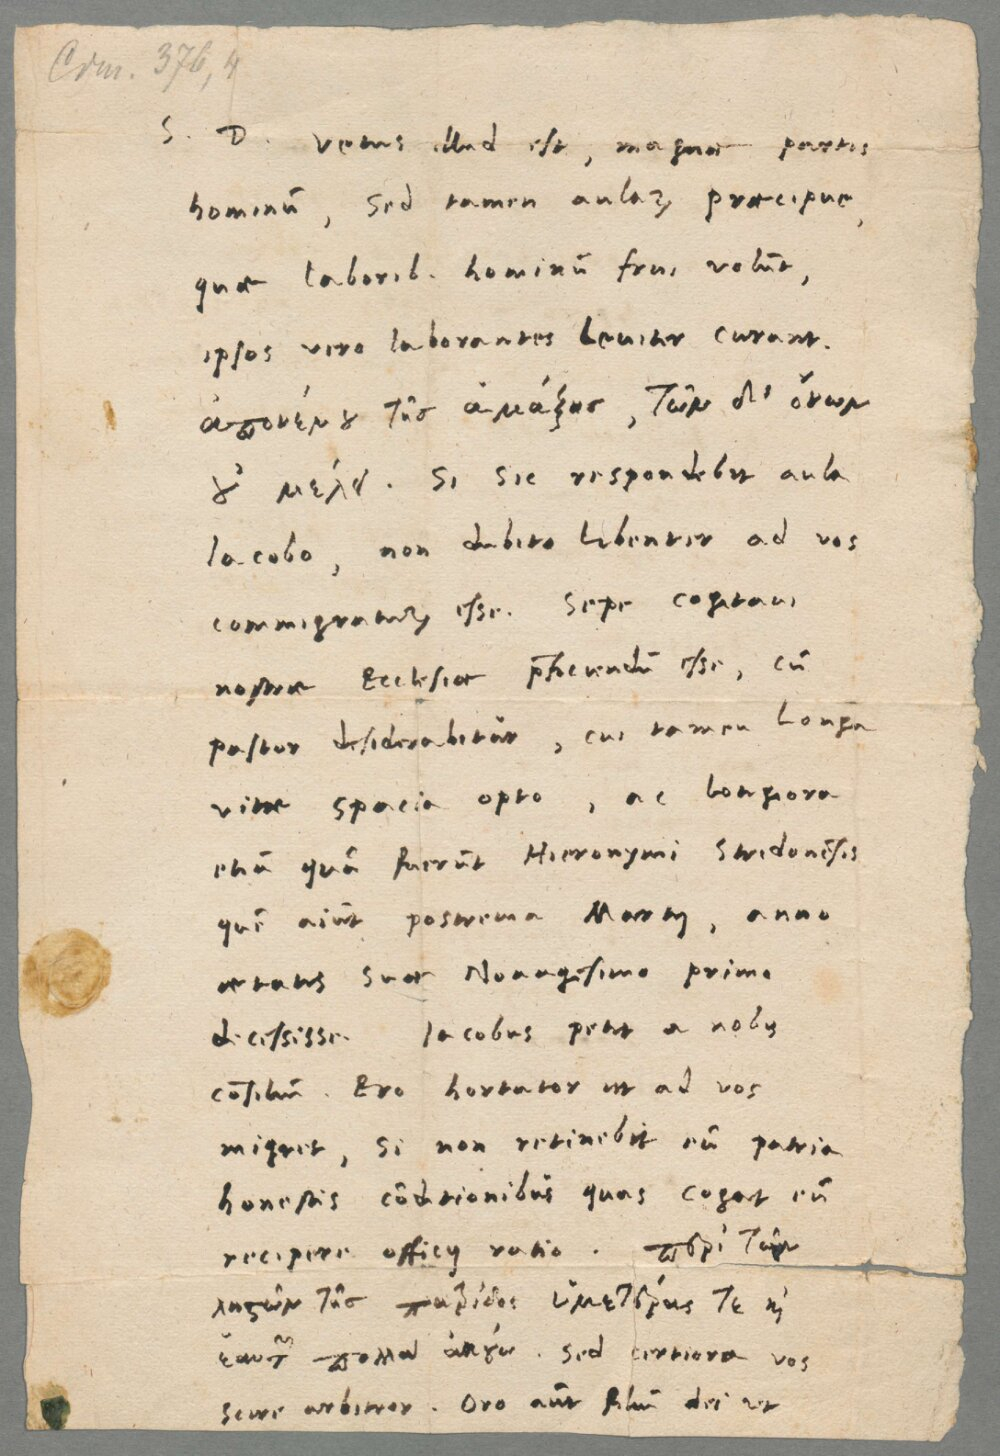 Cdm. 376, 4
S. D. Vetus illud est, magnae partis
hominū, sed tamen aulaꝝ praecipue,
quae laborib. hominū frui volūt,
ipsos vero laborantes leviter curant.
ἀπονέμου τῆς ἁμάξης, τῶν δ' ὄνων
οὐ μέλει. Si sic respondebit aula
Iacobo, non dubito libenter ad vos
commigraturꝝ esse. Sepe cogitavi
nostrae Ecclesiae p̄ficiendū esse, cū
pastor desiderabitur, cui tamen longa
vitae spacia opto, ac longiora
etiā quā fuerūt Hieronymi Stridonēsis
quē aiūt postrema Martij, anno
aetatis suae Nonagesimo primo
decessisse. Iacobus petit a nobis
cōsiliū. Ero hortator ut ad vos
migret, si non retinebit eū patria
honestis cōditionibus quas cogat eū
recipere officij ratio. περὶ τῶν
ληστῶν τῆς πατρίδος ὑμετέρας τε καὶ
πολλὰ ἀκούω. Sed certiora vos
scire arbitror. Oro aūt filiū dei ut